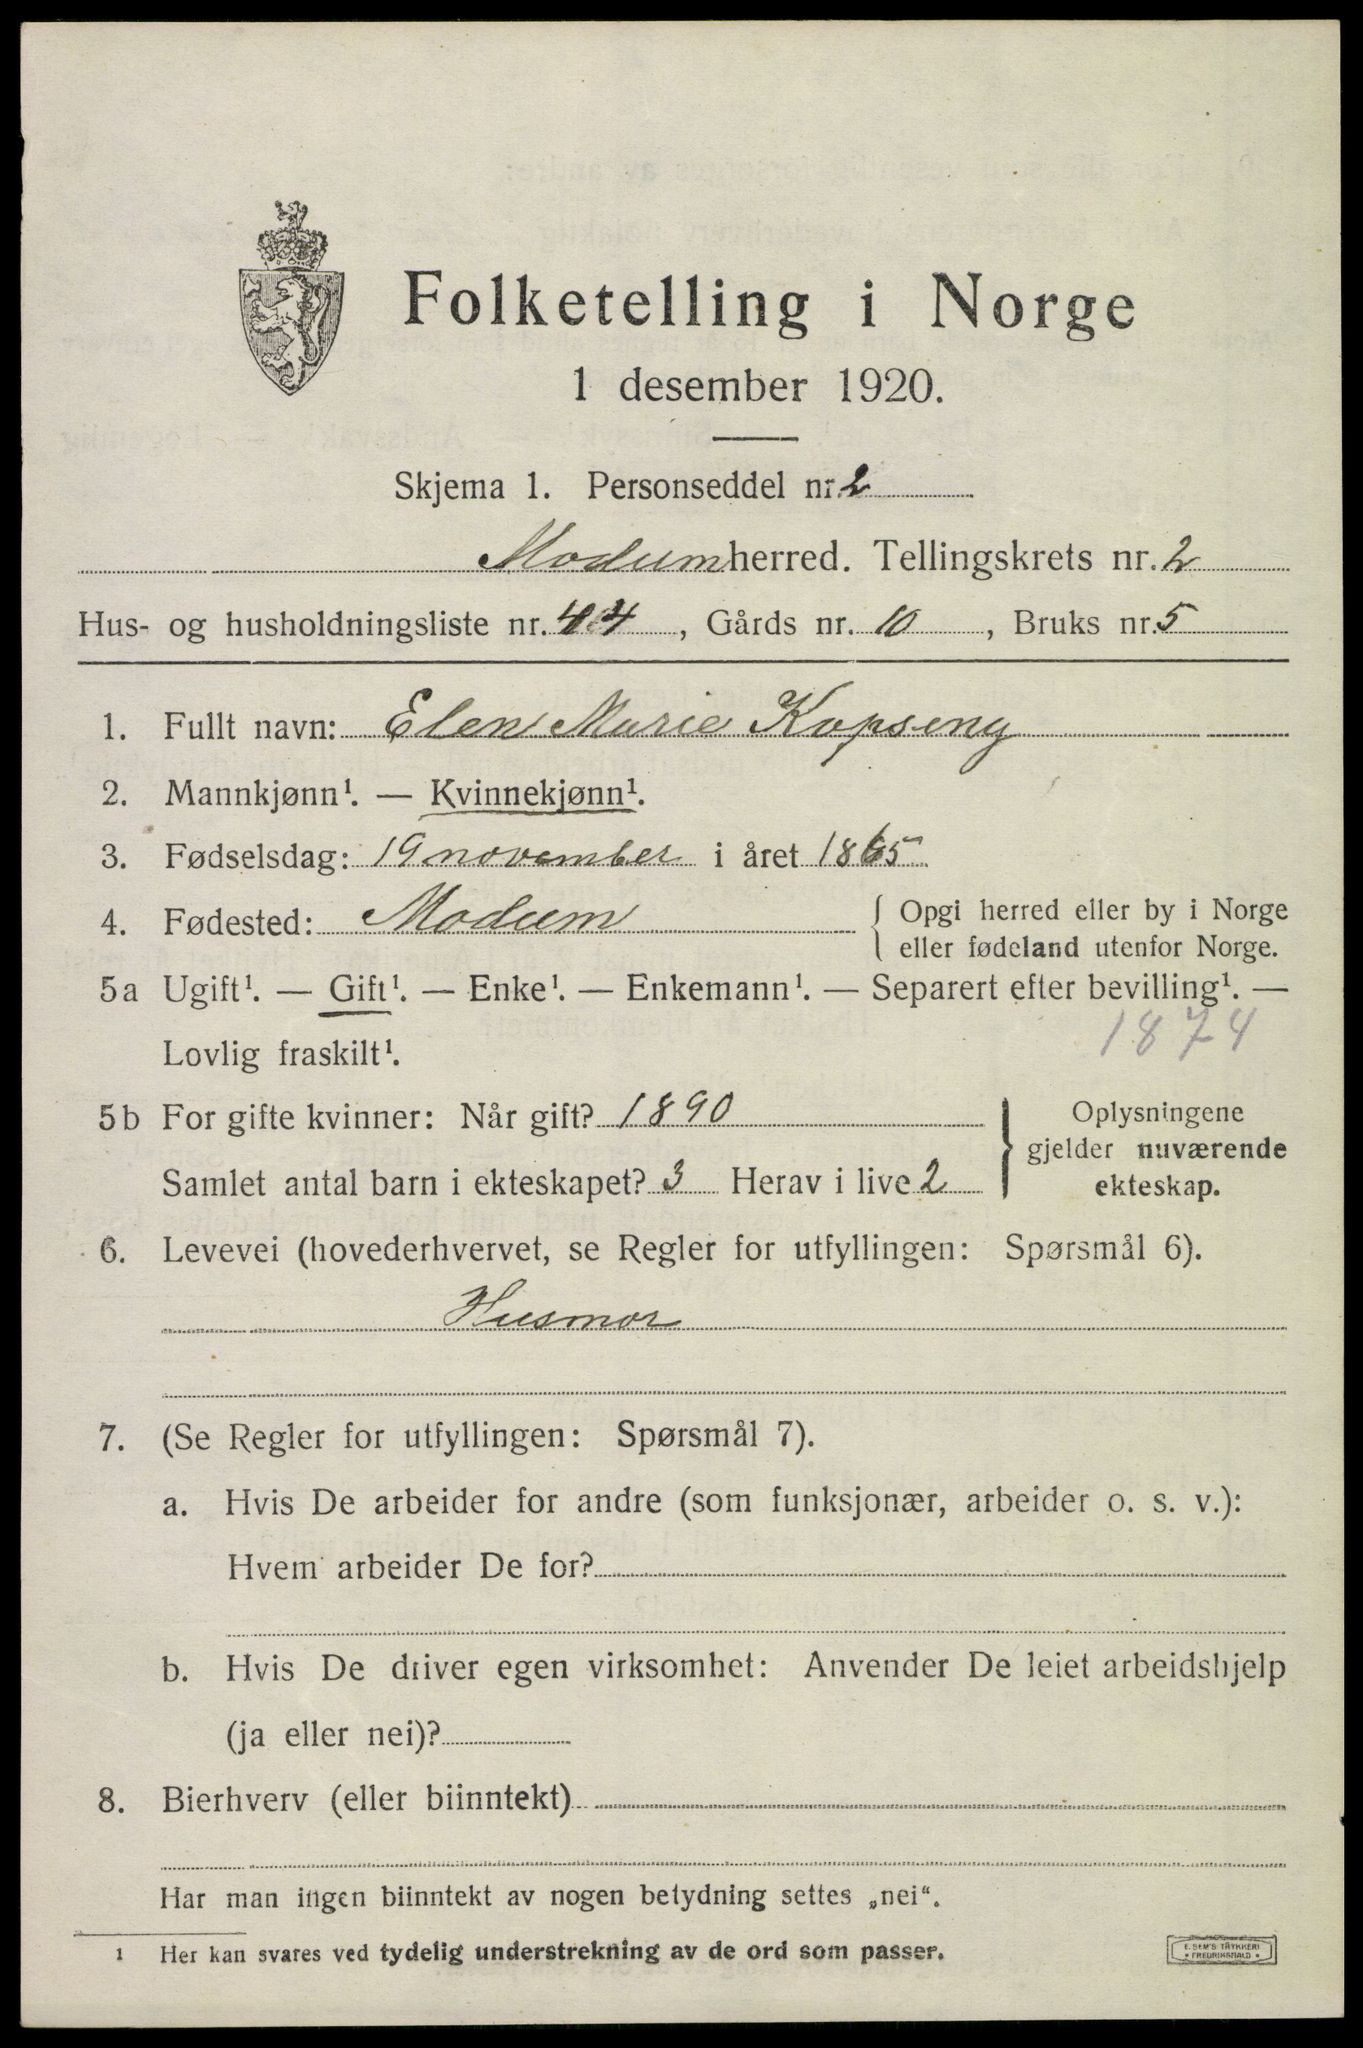 Folketelling i Norge
1 desember 1920.
Skjema 1. Personseddel nr. 2
Modum herred. Tellingskrets nr. 2
Hus- og husholdningsliste nr. 44, Gårds nr. 10, Bruks nr. 5
1. Fullt navn: Elen Marie Kopseng
2. Mannkjønn¹. — Kvinnekjønn¹.
3. Fødselsdag: 19 november i året 1865
4. Fødested: Modum { Opgi herred eller by i Norge
eller fødeland utenfor Norge.
5a Ugift¹. — Gift¹. — Enke¹. — Enkemann¹. — Separert efter bevilling¹. —
Lovlig fraskilt¹. 1874
5b For gifte kvinner: Når gift? 1890
Samlet antal barn i ekteskapet? 3 Herav i live 2
} Oplysningene
gjelder nuværende
ekteskap.
6. Levevei (hovederhvervet, se Regler for utfyllingen: Spørsmål 6).
Husmor
7. (Se Regler for utfyllingen: Spørsmål 7).
a. Hvis De arbeider for andre (som funksjonær, arbeider o. s. v.):
Hvem arbeider De for?
b. Hvis De driver egen virksomhet: Anvender De leiet arbeidshjelp
(ja eller nei)?
8. Bierhverv (eller biinntekt)
Har man ingen biinntekt av nogen betydning settes „nei“.
1 Her kan svares ved tydelig understrekning av de ord som passer.
E. SEM'S TRYKKERI
FREDRIKSHALD